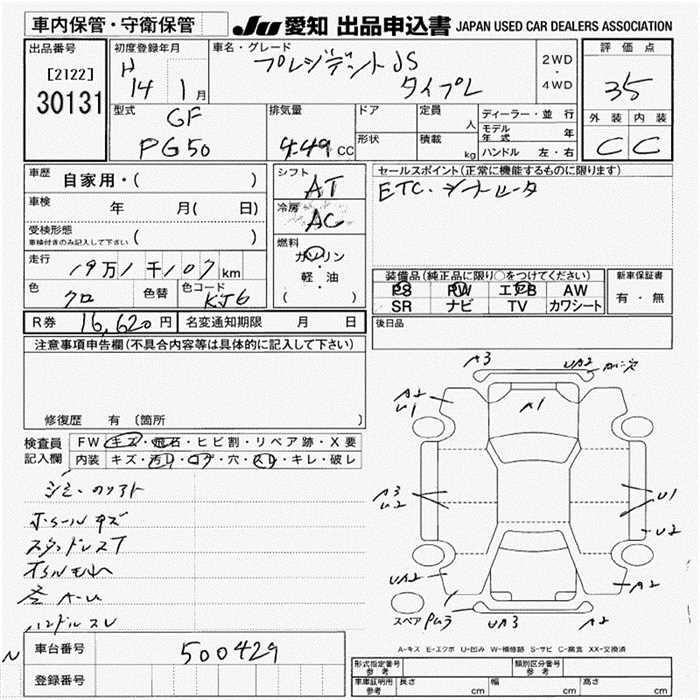 車内保管・守衛保管
JU 愛知 出品申込書 JAPAN USED CAR DEALERS ASSOCIATION
出品番号
[2122]
30131
初度登録年月
H 14 1 月
車名・グレード
プレジデント JS
タイプL
2WD
・
4WD
評価点
35
外装 内装
C C
型式
GF
PG50
排気量
4.49 CC
ドア
形状
定員
人
積載
kg
ディーラー・並行
モデル年式 年
ハンドル 左・右
車歴 自家用・( )
車検 年 月( 日)
受検形態
車検付きのみ記入して下さい ( )
走行 19万1千107km
色 クロ 色替 色コード KJ6
シフト AT
冷房 AC
燃料
ガソリン
・
軽・油
( )
セールスポイント(正常に機能するものに限ります)
ETC.シートヒータ
装備品(純正品に限り○をつけてください)
PS PW エアB AW
SR ナビ TV カワシート
新車保証書
有・無
R券 16,620円 名変通知期限 月 日
後日品
注意事項申告欄(不具合内容等は具体的に記入して下さい)
修復歴 有〔箇所 〕
検査員記入欄
FW キズ・飛石・ヒビ割・リペア跡・X要
内装 キズ・汚れ・コゲ・穴・スレ・キレ・破レ
ホイールキズ
スタッドレスT
ハンドルスレ
A3
UA2
A2
U1
A1
A3
U2
U1
U2
UA2
A2
スペア
UA3
A2
A-キズ E-エクボ U-凹み W-補修跡 S-サビ C-腐食 XX-交換済
N
車台番号 500429
登録番号
形式指定番号 参考
類別区分番号 参考
車庫証明用 参考 長さ cm 幅 cm 高さ cm